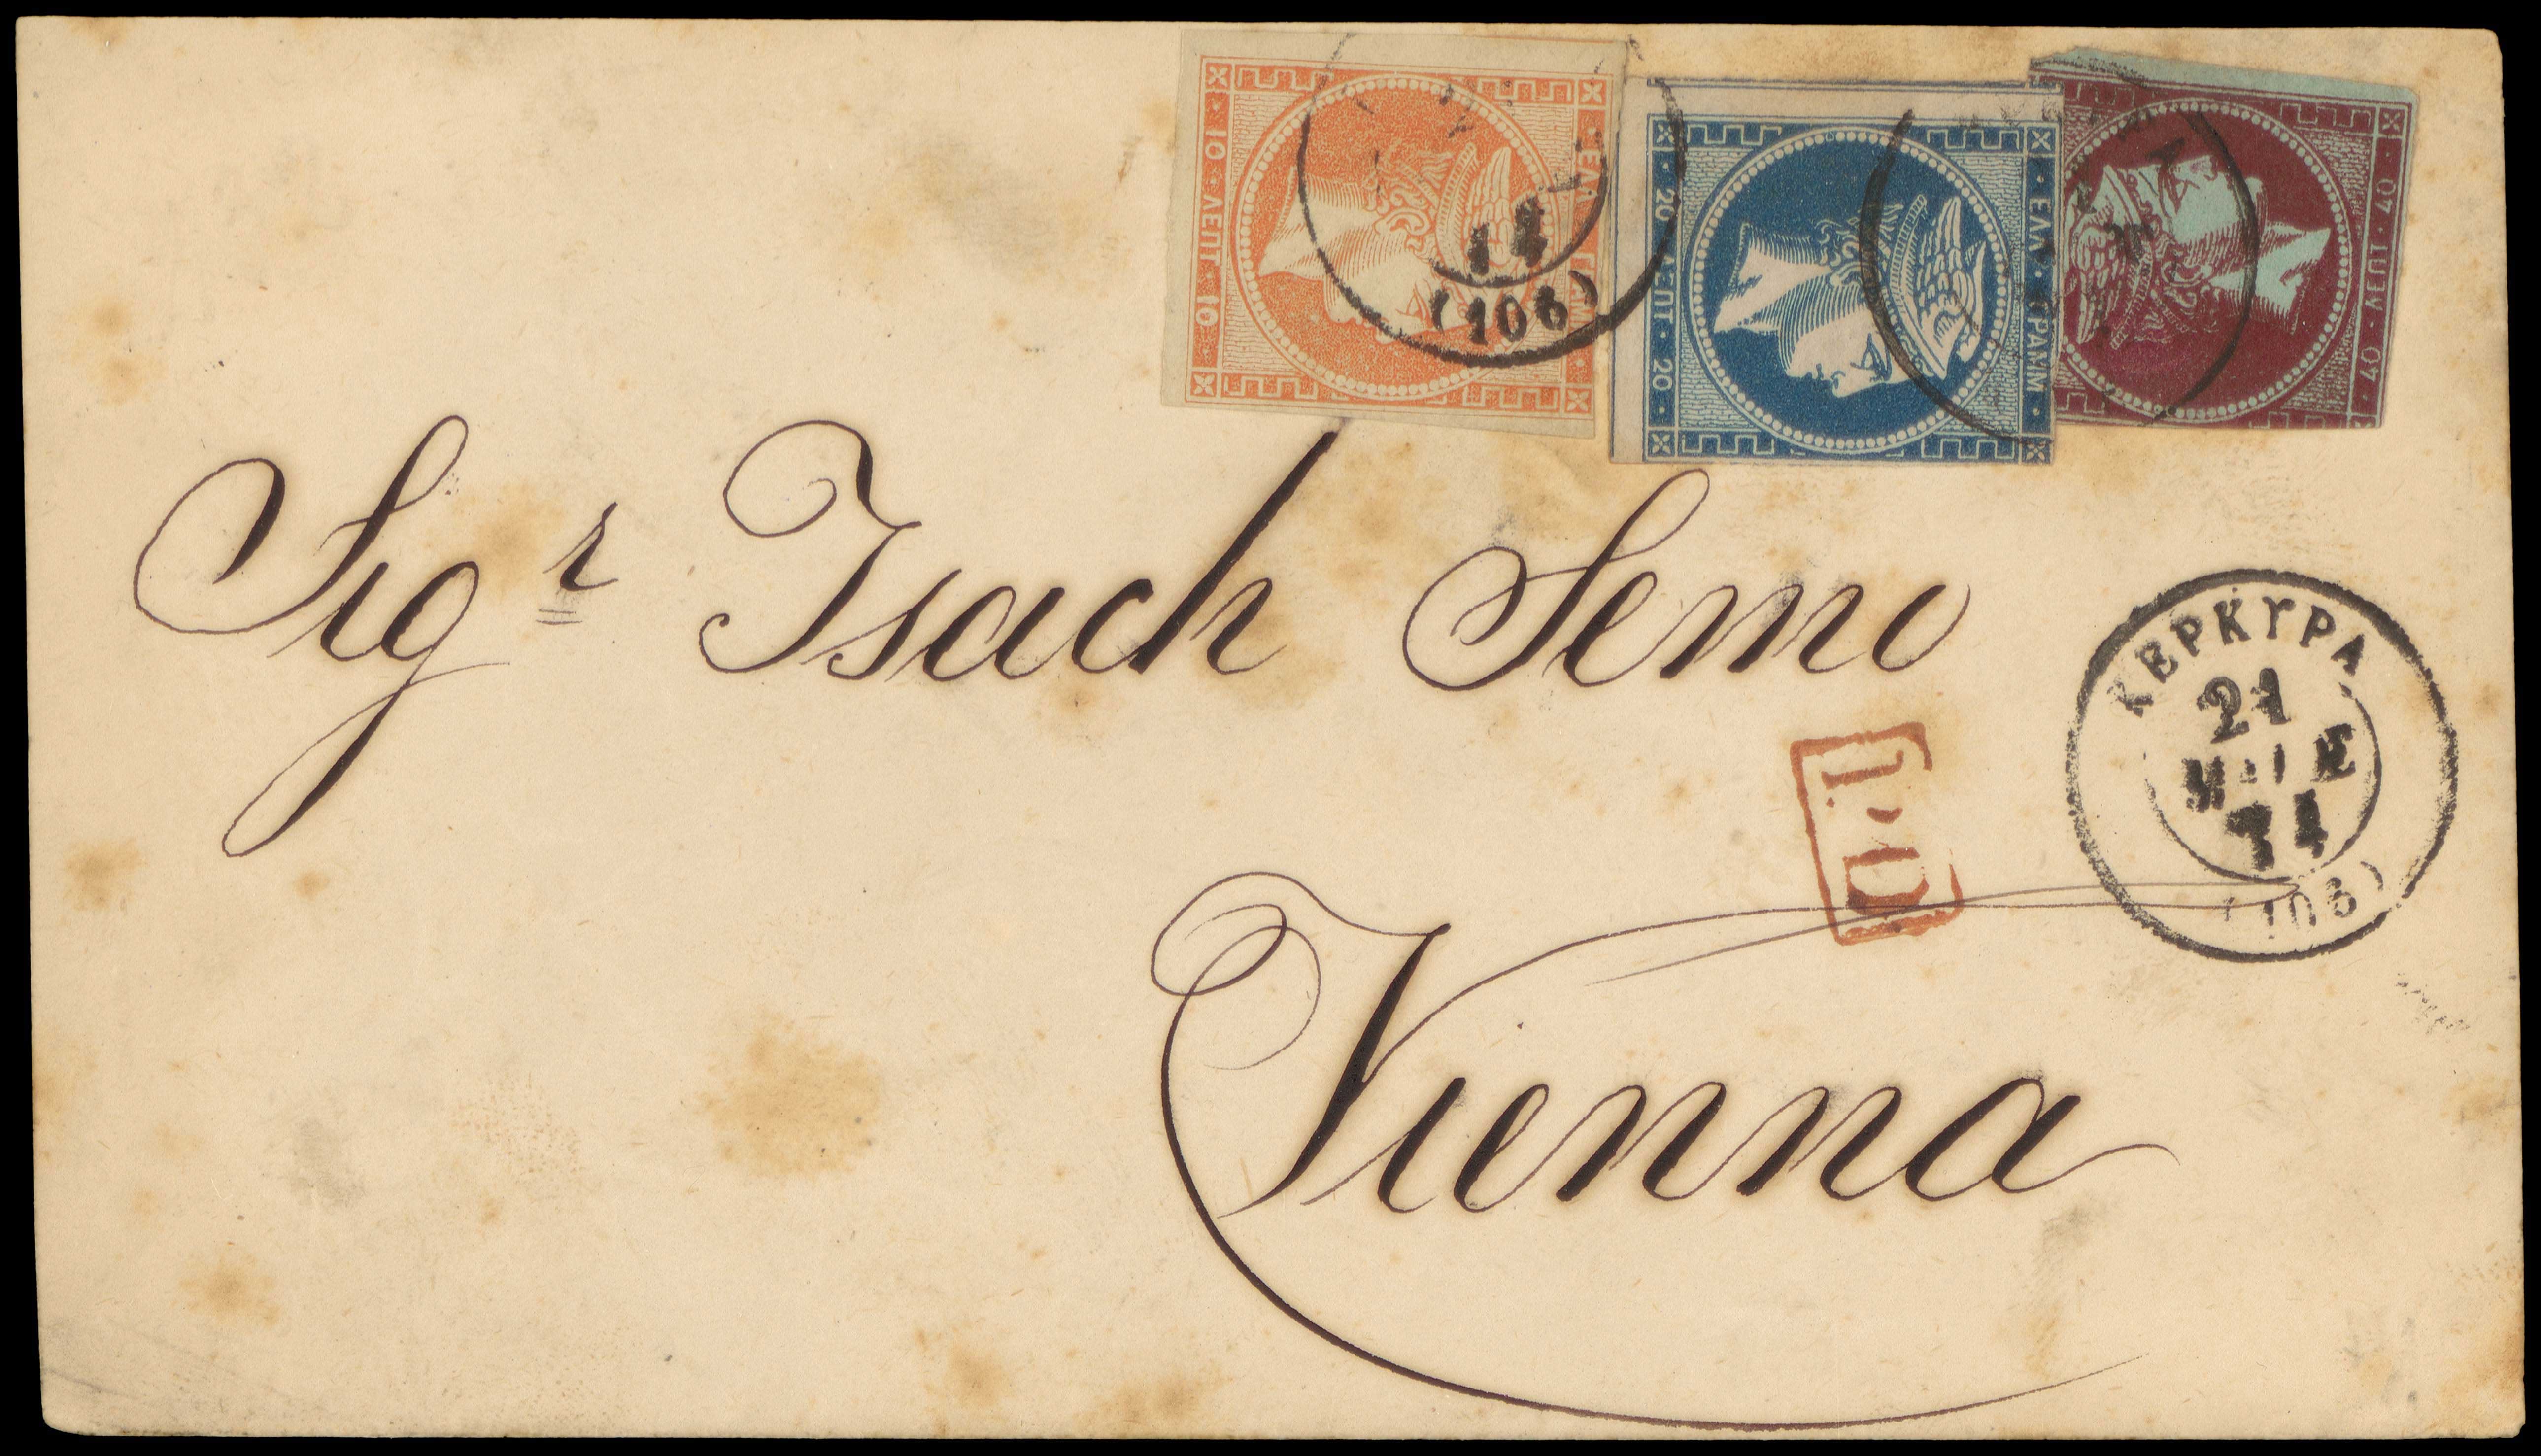 10 · ΛΕΠΤ · 10
ΕΛΛ
(106)
20 · ΛΕΠΤ · 20
ΕΛΛ · ΓΡΑΜΜ
40 · ΛΕΠ · 40
Sigr Isach Semo
ΚΕΡΚΥΡΑ
21
74
(106)
P.D.
Vienna